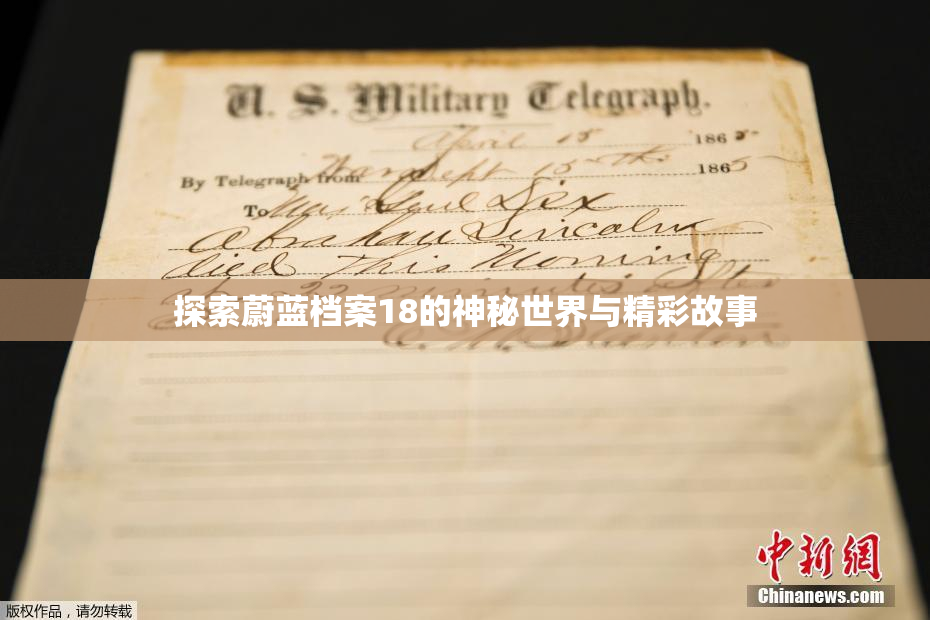 U. S. Military Telegraph.
April 15 1865
By Telegraph from War Dept 15th 1865
To Maj Genl Dix
Abraham Lincoln
died This Morning
at 22 minutes after
探索蔚蓝档案18的神秘世界与精彩故事
E. M. Stanton
中新網
Chinanews.com
版权作品，请勿转载